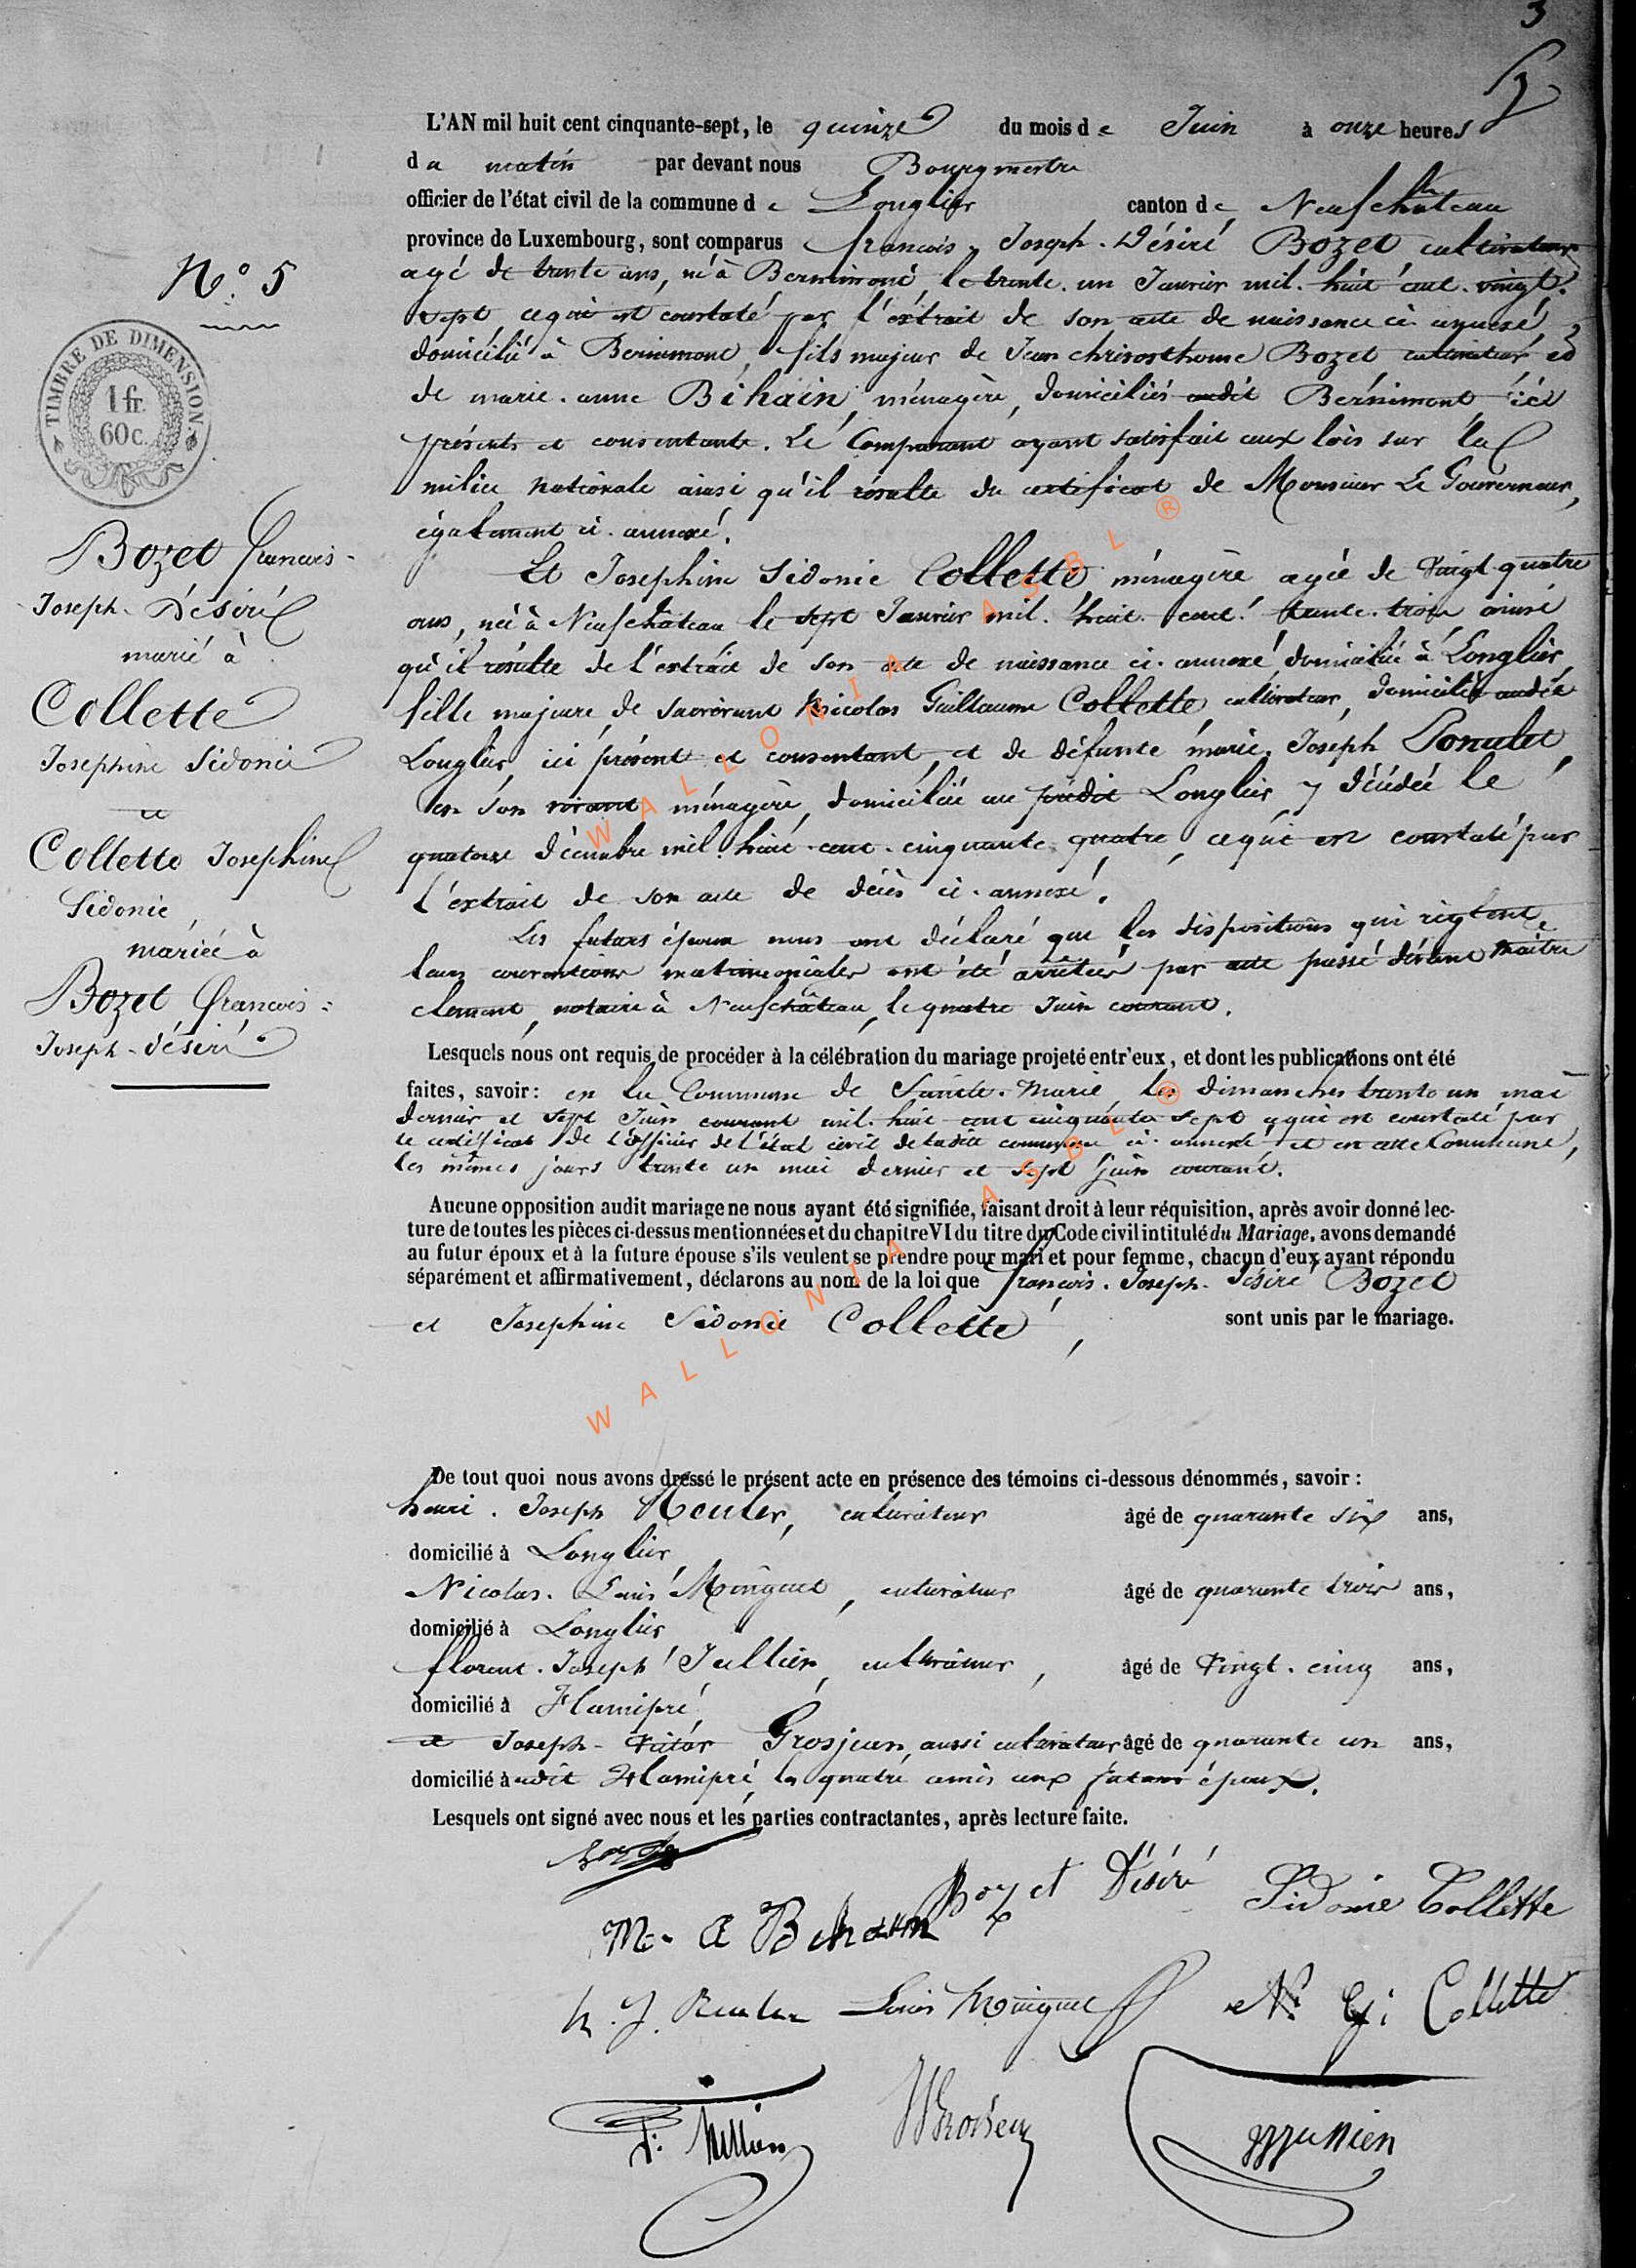 3
L'AN mil huit cent cinquante-sept, le quinze du mois de Juin à onze heures
du matin par devant nous Bourgmestre
officier de l'état civil de la commune de Longlier canton de Neufchâteau
province de Luxembourg, sont comparus francois Joseph Désiré Bozet cultivateur
agé de trente ans, né à Bernimont, le trente un Janvier mil huit cent vingt
sept ce qui est constaté par l'extrait de son acte de naissance ci annexé,
domicilié à Bernimont, fils majeur de Jean chrisosthome Bozet cultivateur et
de marie anne Bihain, ménagère, domiciliés audit Bernimont ici
présents et consentants. Le Comparant ayant satisfait aux lois sur la
milice nationale ainsi qu'il résulte du certificat de Monsieur Le Gouverneur,
également ci annexé.
Et Josephine Sidonie Collette ménagère agée de vingt quatre
ans, née à Neufchâteau le sept Janvier mil huit cent trente trois ainsi
qu'il résulte de l'extrait de son acte de naissance ci annexé domiciliée à Longlier,
fille majeure de Nicolas Guillaume Collette cultivateur, domicilié audit
Longlier, ici présent et consentant, et de défunte marie Joseph Poncelet,
en son vivant ménagère, domiciliée au prédit Longlier y décédée le
quatorze décembre mil huit cent cinquante quatre, ce qui est constaté par
l'extrait de son acte de décès ci annexé.
Les futurs époux nous ont déclaré que les dispositions qui règlent
leurs conventions matrimoniales ont été arrêtées par acte passé devant maître
clement, notaire à Neufchâteau, le quatre Juin courant.
Lesquels nous ont requis de procéder à la célébration du mariage projeté entr'eux, et dont les publications ont été
faites, savoir: en la Commune de Sainte-Marie les dimanches trente un mai
dernier et sept Juin courant mil huit cent cinquante sept ce qui est constaté par
le certificat de l'officier de l'état civil de ladite commune ci annexé et en cette Commune,
les mêmes jours trente un mai dernier et sept juin courant.
Aucune opposition audit mariage ne nous ayant été signifiée, faisant droit à leur réquisition, après avoir donné lec-
ture de toutes les pièces ci-dessus mentionnées et du chapitre VI du titre du Code civil intitulé du Mariage, avons demandé
au futur époux et à la future épouse s'ils veulent se prendre pour mari et pour femme, chacun d'eux ayant répondu
séparément et affirmativement, déclarons au nom de la loi que francois Joseph Désiré Bozet
et Josephine Sidonie Collette, sont unis par le mariage.
De tout quoi nous avons dressé le présent acte en présence des témoins ci-dessous dénommés, savoir:
henri Joseph Reuler, cultivateur âgé de quarante six ans,
domicilié à Longlier
Nicolas Louis Minguet, cultivateur âgé de quarante trois ans,
domicilié à Longlier
florent Joseph Jullien, cultivateur, âgé de vingt cinq ans,
domicilié à Hamipré,
et Joseph Victor Grosjean, aussi cultivateur âgé de quarante un ans,
domicilié à udit Hamipré, les quatre amis aux futurs époux.
Lesquels ont signé avec nous et les parties contractantes, après lecture faite.
Bozet Désiré Sidonie Collette
M. A Bihain
h. J. Reuler Louis Minguet N. G. Collette
N° 5
TIMBRE DE DIMENSION
1 fr.
60 c.
Bozet francois
Joseph Désiré
marié à
Collette
Josephine Sidonie
et
Collette Josephine
Sidonie
mariée à
Bozet francois
Joseph désiré
WALLONIA ASBL ®
WALLONIA ASBL ®